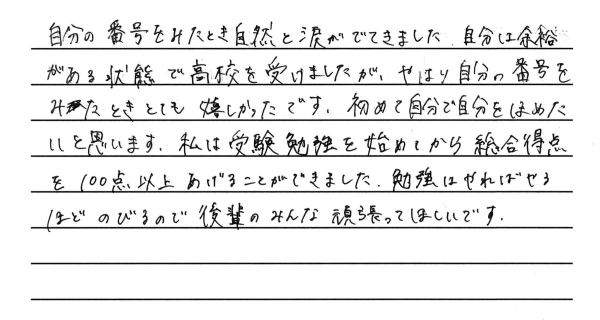 自分の番号をみたとき自然と涙がでてきました。自分は余裕
がある状態で高校を受けましたが、やはり自分の番号を
みたときとても嬉しかったです。初めて自分で自分をほめた
いと思います。私は受験勉強を始めてから総合得点
を100点以上あげることができました。勉強はやればやる
ほどのびるので後輩のみんな頑張ってほしいです。